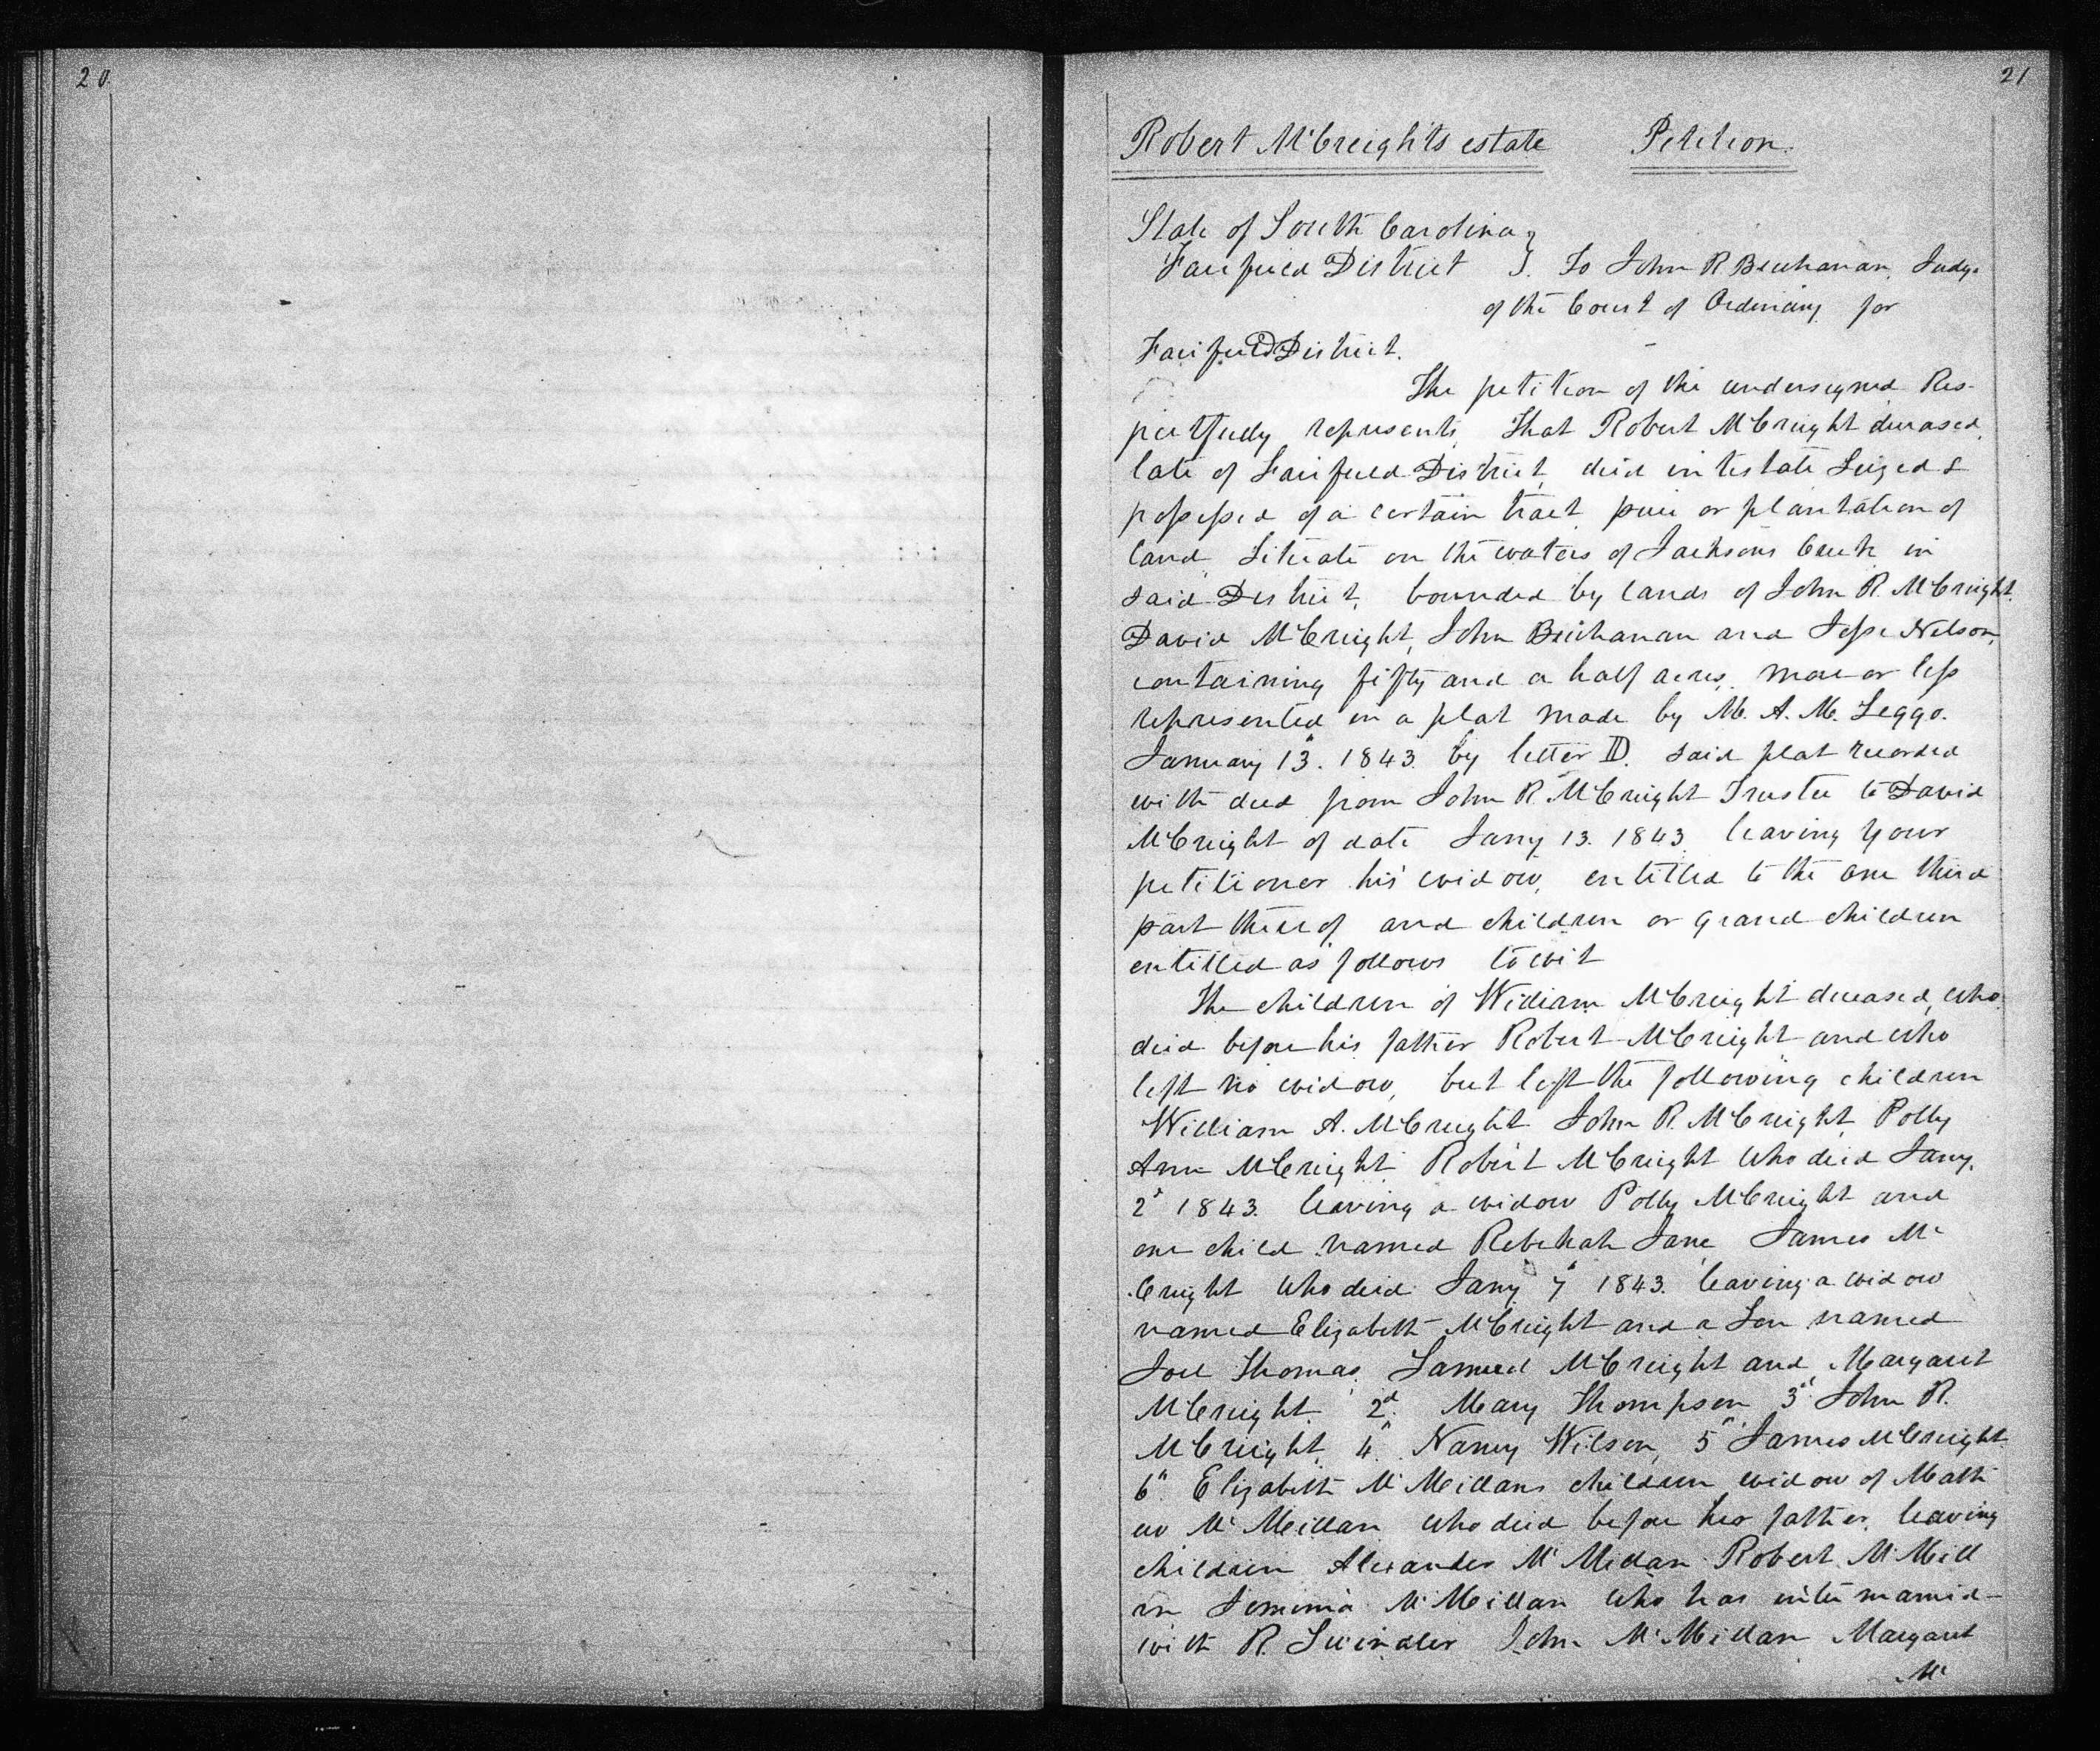 20
21
Robert McCreights estate Petition.
State of South Carolina }
Fairfield District }. To John R Buchanan, Judge
of the Court of Ordinary for
Fairfield District.
The petition of the undersigned Res-
pectfully represents, That Robert McCreight deceased,
late of Fairfield District, died intestate Seized &
possessed of a certain tract, piece or plantation of
land, Situate on the waters of Jacksons Creek in
said District, bounded by lands of John R. McCreight.
David McCreight, John Buchanan and Jesse Nelson,
containing fifty and a half acres, more or less
represented in a plat made by M. A. M. Leggo.
January 13. 1843. by letter D. said plat recorded
with deed from John R. McCreight Trustee to David
McCreight of date Jany 13. 1843. leaving your
petitioner his widow, entitled to the one third
part thereof and children or grand children
entitled as follows to wit
The children of William McCreight deceased, who
died before his father Robert McCreight and who
left no widow, but left the following children
William A. McCreight John R. McCreight, Polly
Ann McCreight Robert McCreight who died Jany.
2d 1843. leaving a widow Polly McCreight and
one child named Rebekah Jane James Mc
Creight who died Jany 7th 1843. leaving a widow
named Elizabeth McCreight and a Son named
Joel Thomas, Samuel McCreight and Margaret
McCreight. 2d. Mary Thompson 3d John R.
McCreight, 4th Nancy Wilson, 5th James McCreight
6th Elizabeth McMeillans children widow of Math
ew McMeillan who died before her father, leaving
children Alexander McMillan Robert McMill
an Jemima McMeillan who has intermarried
with R. Swindler John McMillan Margaret
Mc